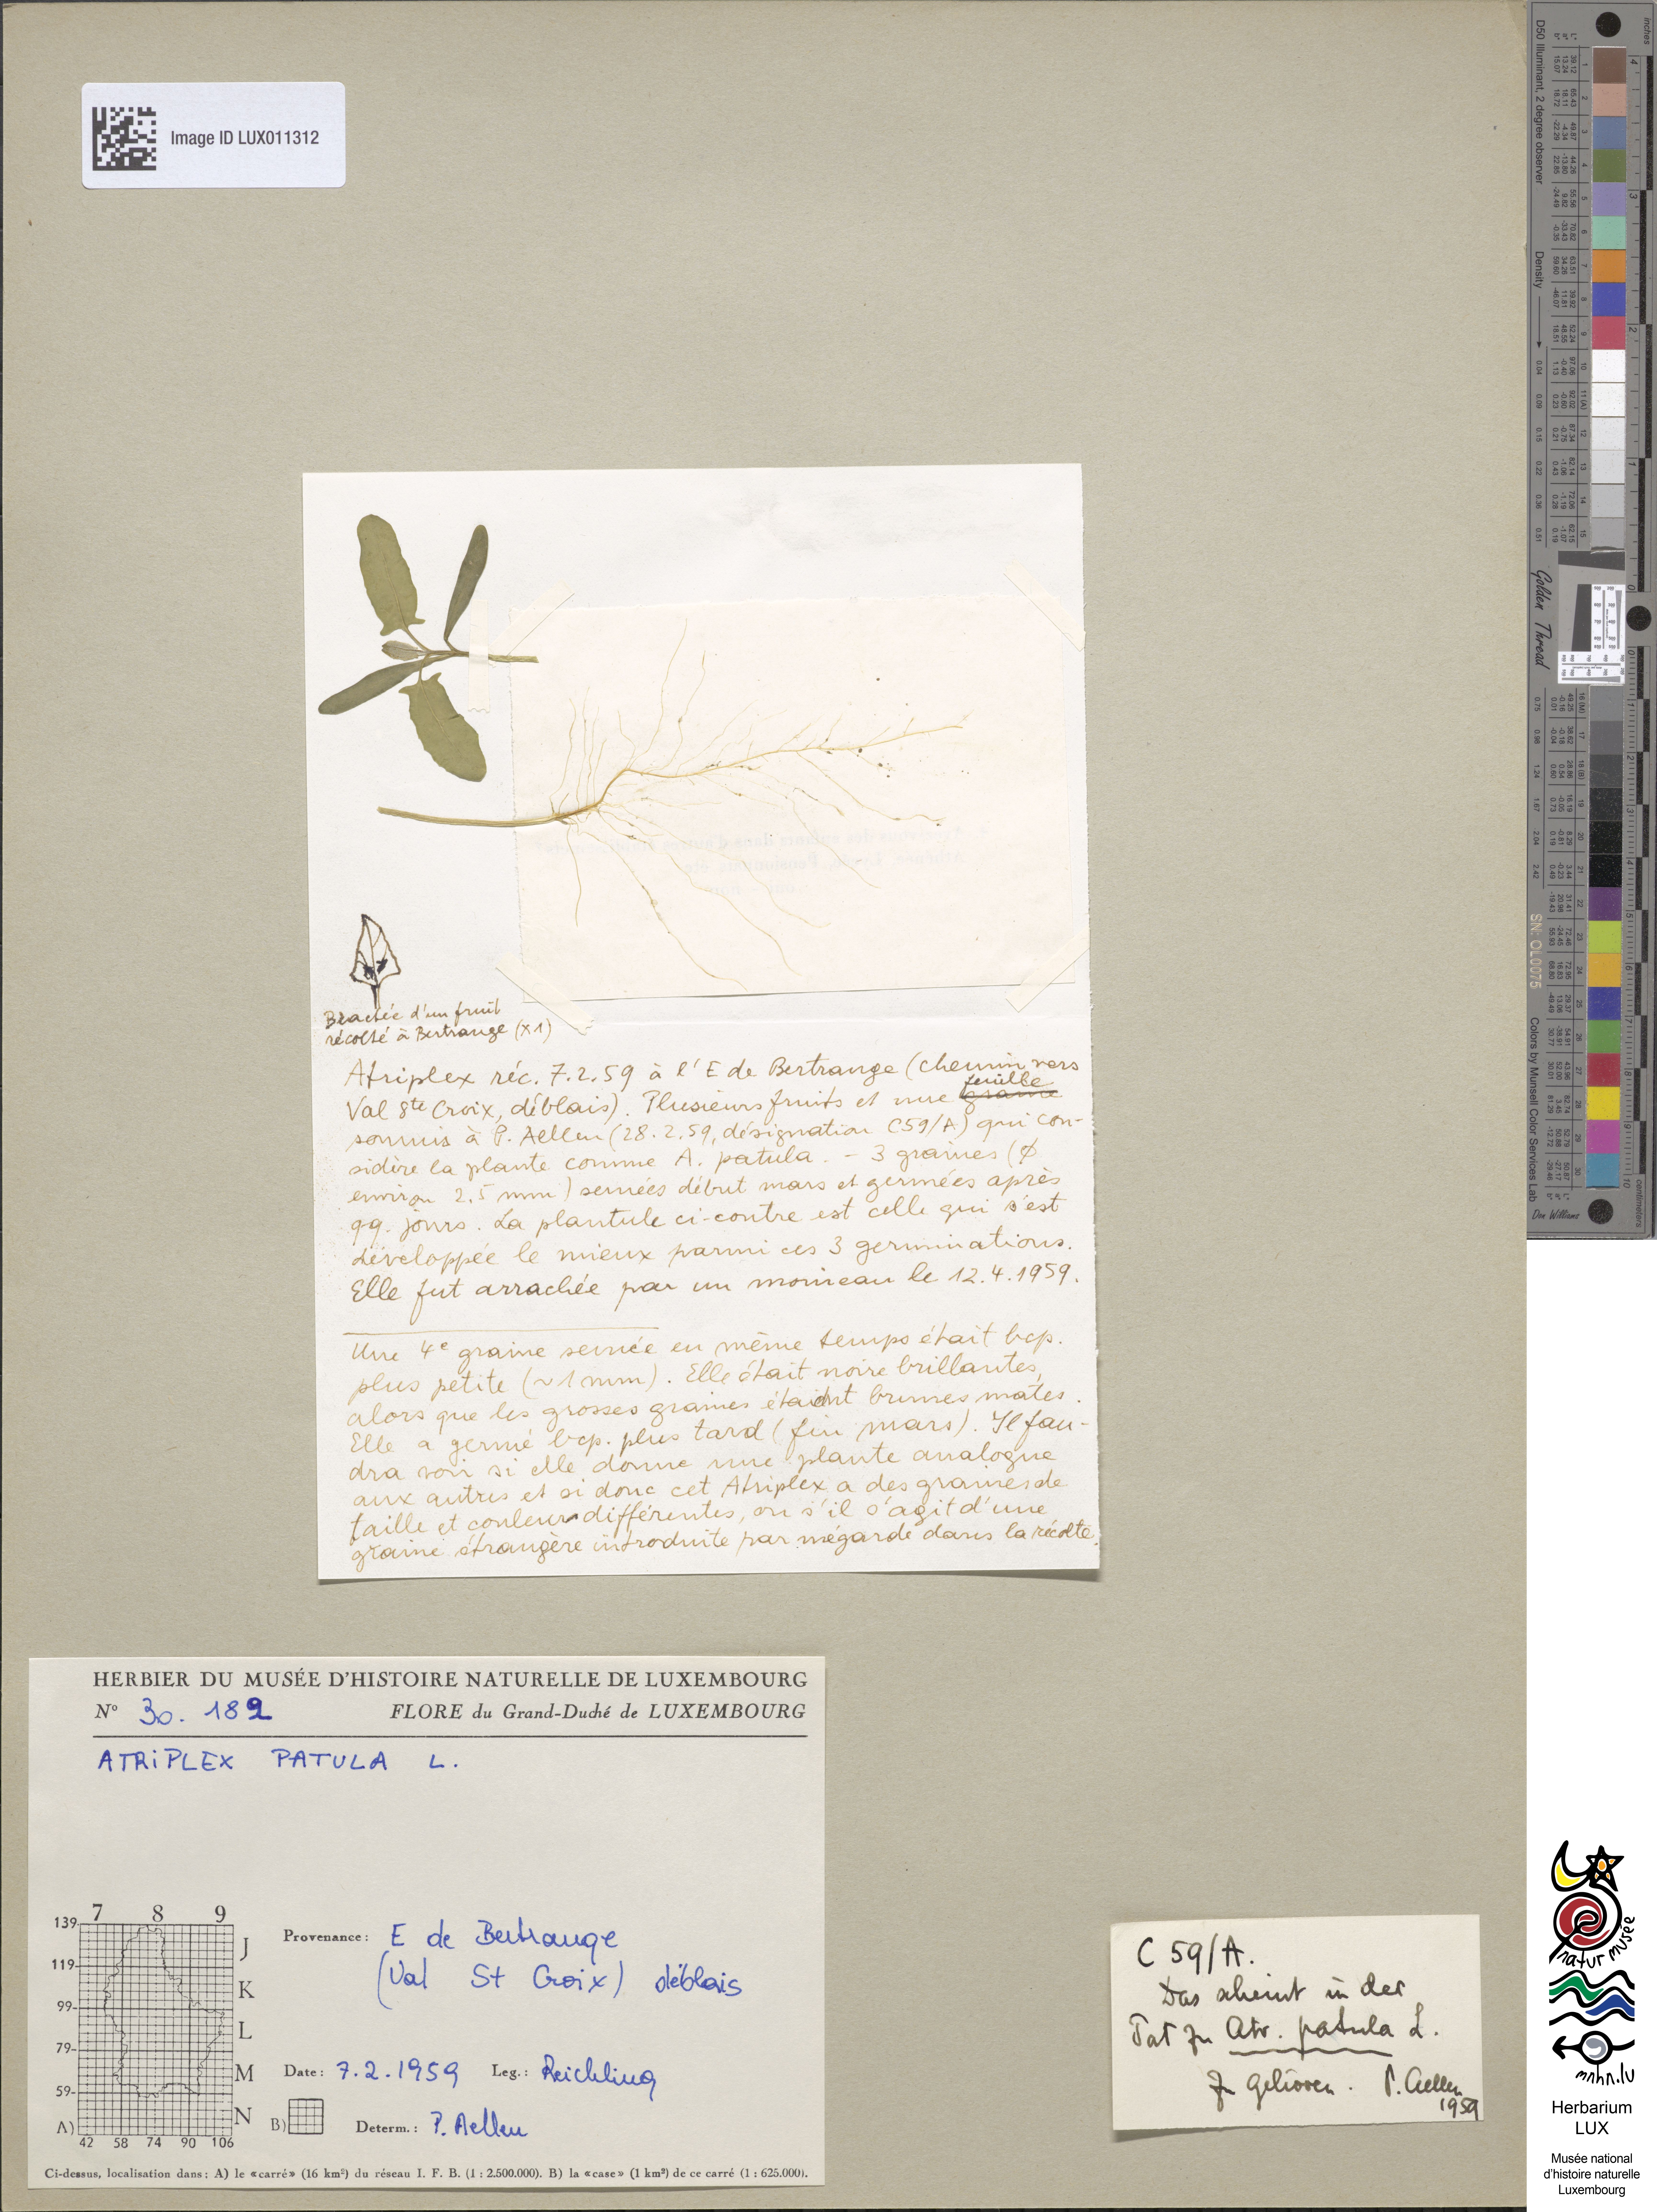 Image ID LUX011312
Bractée d'un fruit
récolté à Bertrange (x1)
Atriplex réc. 7.2.59 à l'E de Bertrange (chemin vers
feuille
Val Ste Croix, déblais). Plusieurs fruits et une graine
soumis à P. Aellen (28.2.59, désignation C59/A) qui con-
sidère la plante comme A. patula. - 3 graines (ϕ
environ 2.5 mm) semées début mars et germées après
qq. jours. La plantule ci-contre est celle qui s'est
développée le mieux parmi ces 3 germinations.
Elle fut arrachée par un moineau le 12.4.1959.
Une 4e graine semée en même temps était bcp.
plus petite (~1mm). Elle était noire brillantes,
alors que les grosses graines étaient brunes mates.
Elle a germé bcp. plus tard (fin mars). Il fau-
dra voir si elle donne une plante analogue
aux autres et si donc cet Atriplex a des graines de
taille et couleurs différentes, ou s'il s'agit d'une
graine étrangère introduite par mégarde dans la récolte.
HERBIER DU MUSÉE D'HISTOIRE NATURELLE DE LUXEMBOURG
N° 30.182 FLORE du Grand-Duché de LUXEMBOURG
ATRIPLEX PATULA L.
7 8 9
139
119
99
79
59
J
K
L
M
N
A)
42 58 74 90 106
B)
Provenance: E de Bertrange
(Val St Croix) déblais
Date: 7.2.1959 Leg.: Reichling
Determ.: P. Aellen
Ci-dessus, localisation dans: A) le «carré» (16 km²) du réseau I. F. B. (1 : 2.500.000). B) la «case» (1 km²) de ce carré (1 : 625.000).
C 59/A.
Das scheint in der
Tat zu Atr. patula L.
zu gehören. P. Aellen
1959
D50 Illuminant, 2 degree observer
Density
Golden Thread
SN: OL0075
Colors by Munsell Color Services Lab
Don Williams
inches
centimeters
natur musée
mnhn.lu
Herbarium
LUX
Musée national
d'histoire naturelle
Luxembourg